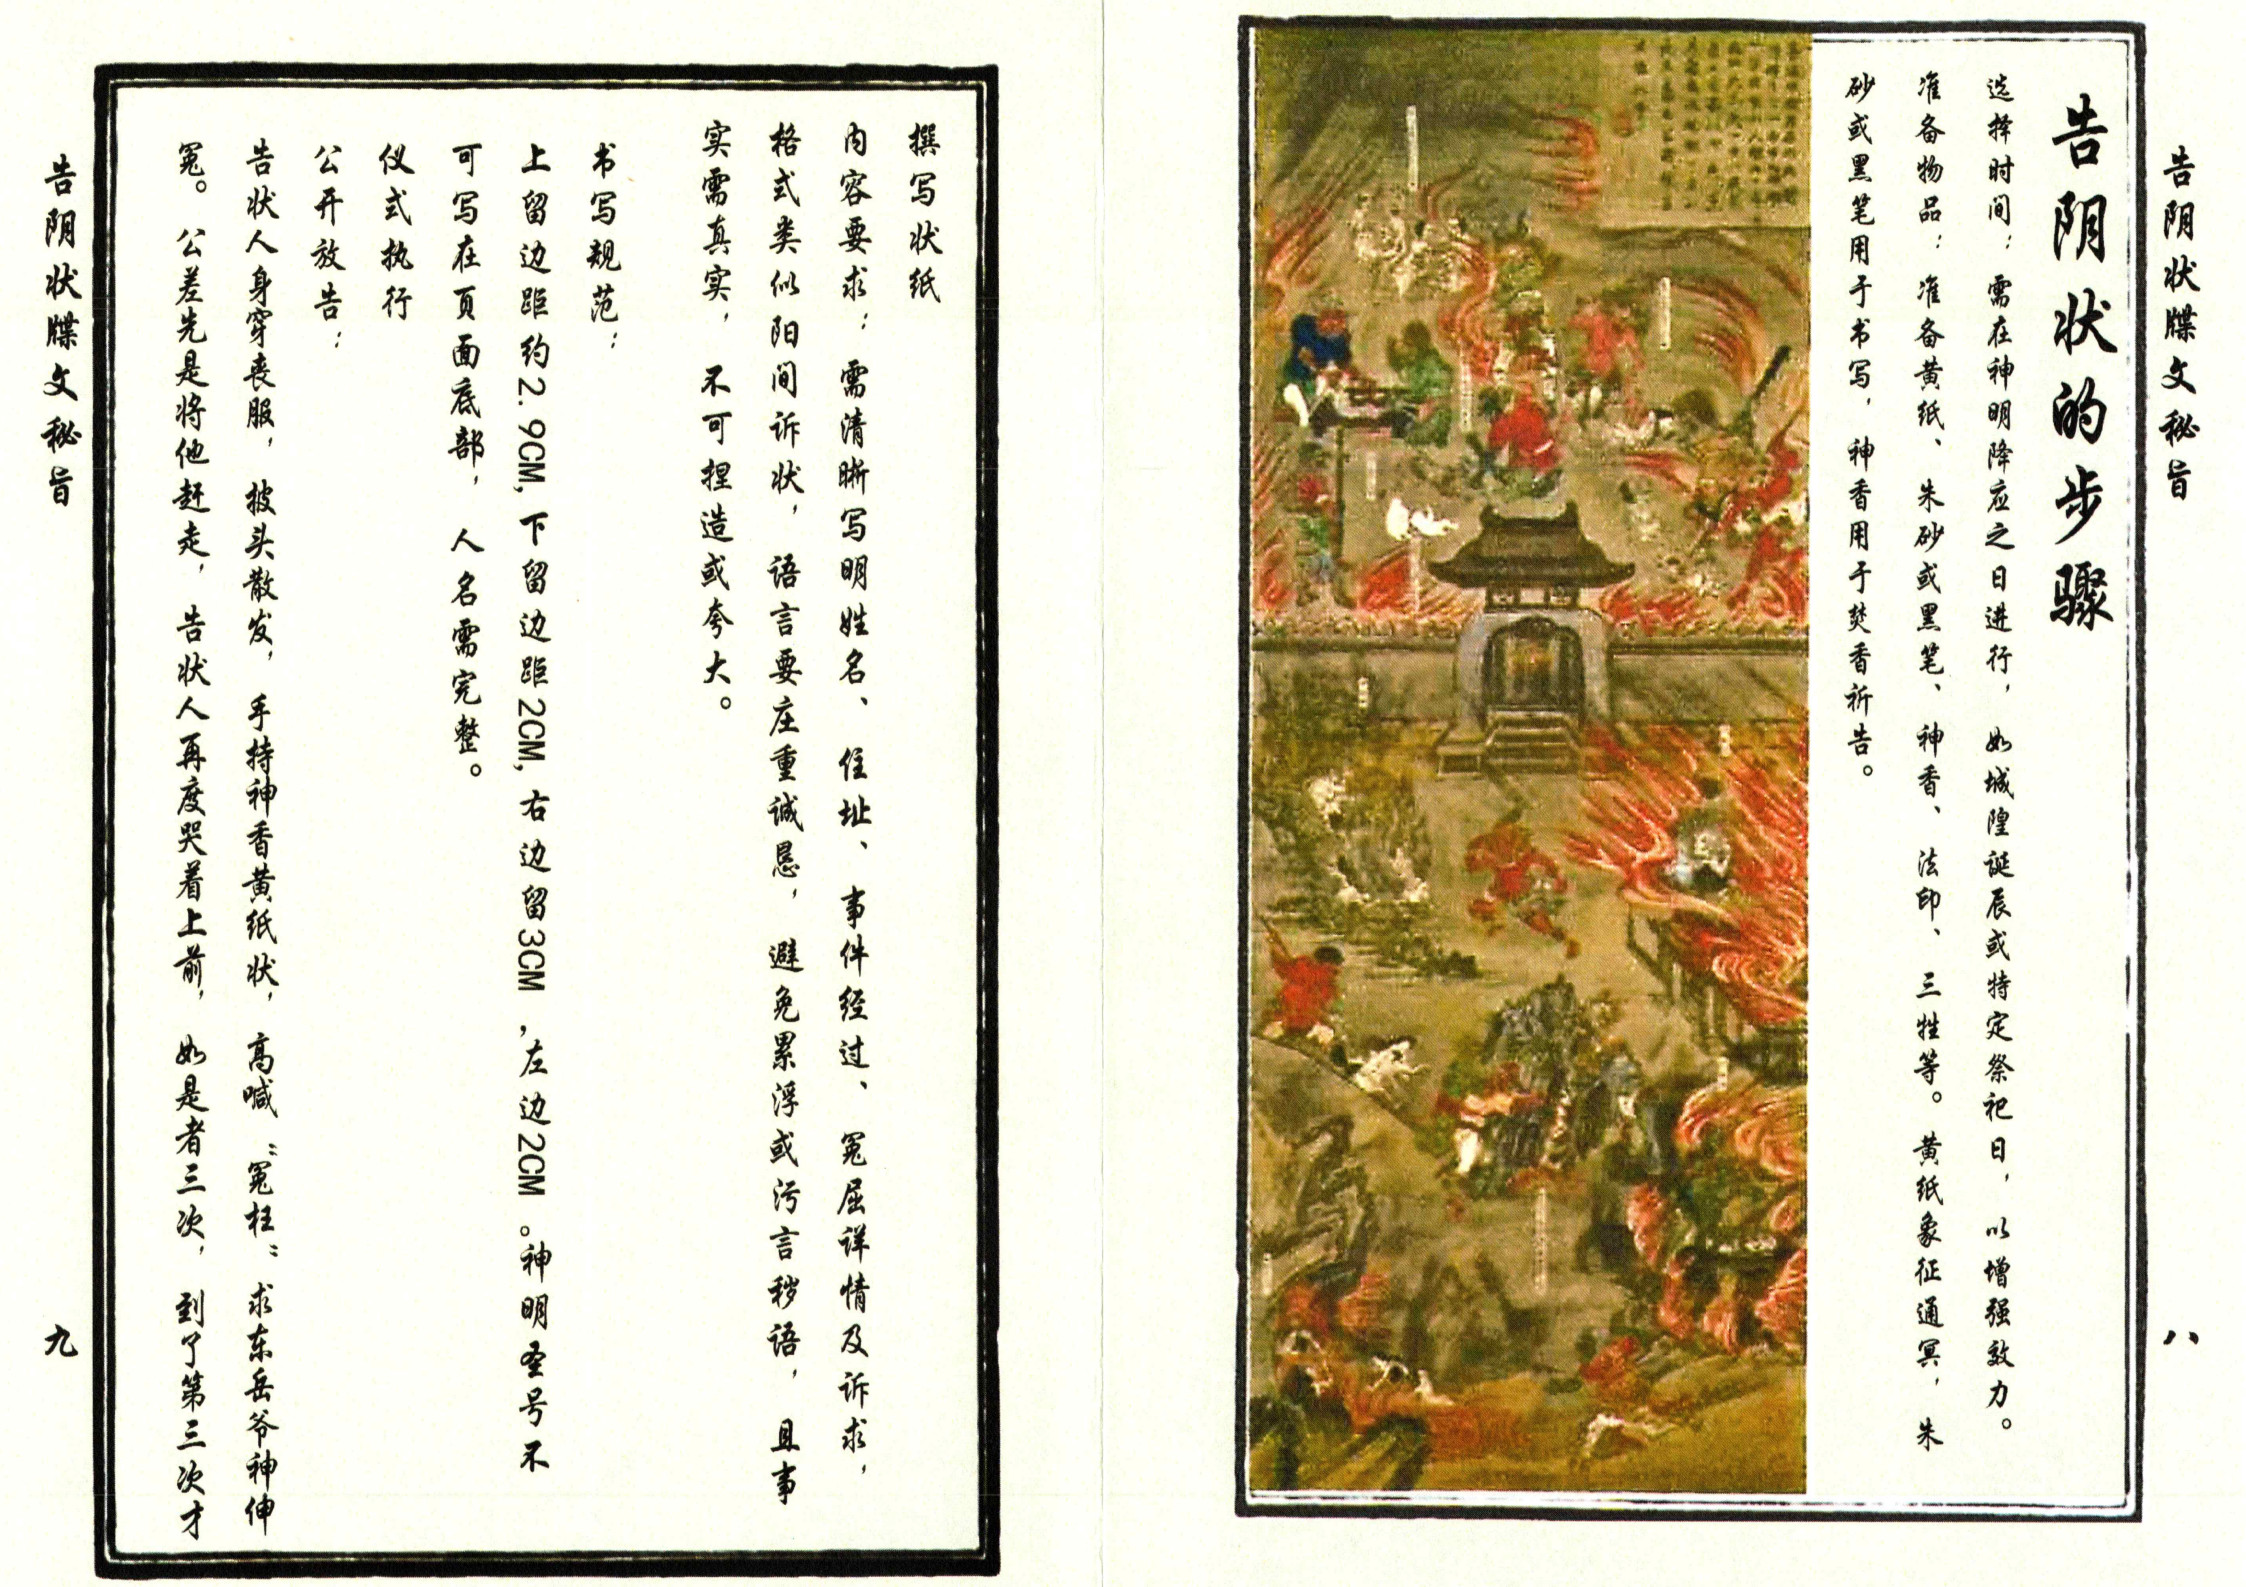 告阴状牒文秘旨
八
告阴状的步骤
选择时间：需在神明降应之日进行，如城隍诞辰或特定祭祀日，以增强效力。
准备物品：准备黄纸、朱砂或黑笔、神香、法印、三牲等。黄纸象征通冥，朱
砂或黑笔用于书写，神香用于焚香祈告。
撰写状纸
内容要求：需清晰写明姓名、住址、事件经过、冤屈详情及诉求，
格式类似阳间诉状，语言要庄重诚恳，避免累浮或污言秽语，且事
实需真实，不可捏造或夸大。
书写规范：
上留边距约2.9CM,下留边距2CM,右边留3CM,左边2CM。神明圣号不
可写在页面底部，人名需完整。
仪式执行
公开放告：
告状人身穿丧服，披头散发，手持神香黄纸状，高喊"冤枉"求东岳爷神伸
冤。公差先是将他赶走，告状人再度哭着上前，如是者三次，到了第三次才
告阴状牒文秘旨
九